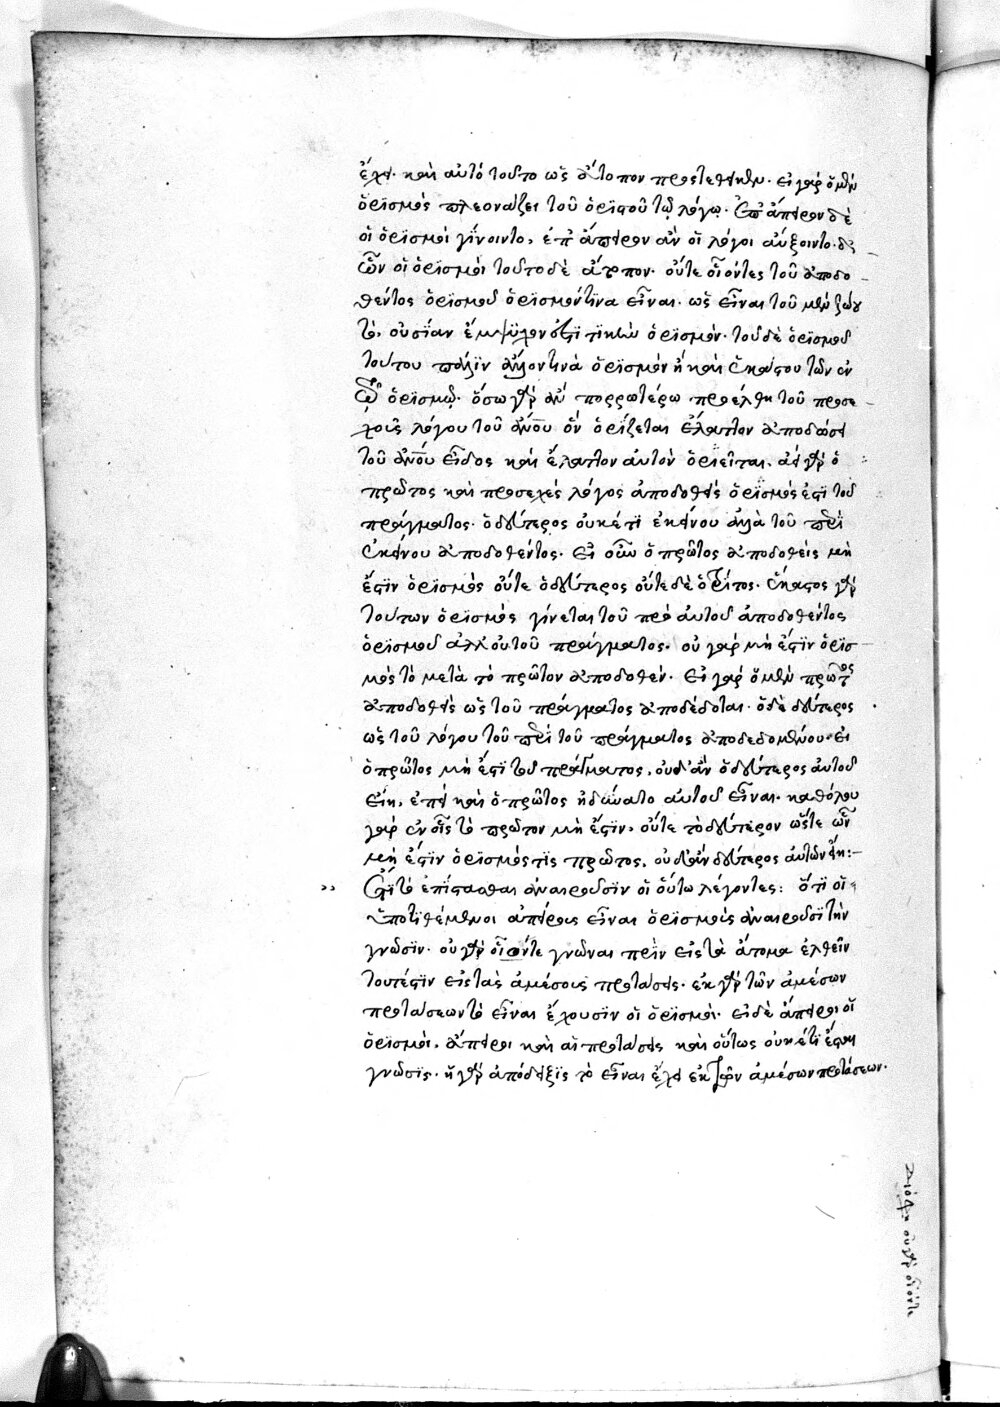 ἔχει· καὶ αὐτὸ τοῦτο ὡς ἄτοπον προστεθήκει. εἰ γὰρ ὁ μὲν
ὁρισμὸς πλεονάζει τοῦ ὁριστοῦ τῷ λόγῳ. ἐπ' ἄπειρον δὲ
οἱ ὁρισμοὶ γίνοιντο, ἐπ' ἄπειρον ἂν οἱ λόγοι αὔξοιντο. δι'
ὧν οἱ ὁρισμοὶ τοῦτο δὲ ἄτοπον. οὔτε οἷόν τε τοῦ ἀποδο
θέντος ὁρισμοῦ ὁρισμόν τινα εἶναι. ὡς εἶναι τοῦ μὲν ζώου
τὸ, οὐσίαν ἔμψυχον αἰσθητικὴν ὁρισμόν. τοῦ δὲ ὁρισμοῦ
τούτου πάλιν ἄλλον τινὰ ὁρισμὸν ἢ καὶ ἑκάστου τῶν ἐν
τῷ ὁρισμῷ. ὅσῳ γὰρ ἂν πορρωτέρω προέλθῃ τοῦ προσε
χοῦς λόγου τοῦ ἀνου ὃν ὁρίζεται ἔλαττον ἀποδώσει
τοῦ ἀνου εἶδος καὶ ἔλαττον αὐτὸν ὁριεῖται. ἀεὶ γὰρ ὁ
πρῶτος καὶ προσεχὴς λόγος ἀποδοθεὶς ὁρισμός ἐστι τοῦ
πράγματος. ὁ δεύτερος οὐκέτι ἐκείνου ἀλλὰ τοῦ περὶ
ἐκείνου ἀποδοθέντος. εἰ οὖν ὁ πρῶτος ἀποδοθεὶς μὴ
ἔστιν ὁρισμὸς οὔτε ὁ δεύτερος οὔτε δὲ ὁ τρίτος. ἕκαστος γὰρ
τούτων ὁρισμὸς γίνεται τοῦ πρὸ αὐτοῦ ἀποδοθέντος
ὁρισμοῦ ἀλλ' οὐ τοῦ πράγματος. οὐ γὰρ μὴ ἔστιν ὁρισ
μὸς τὸ μετὰ τὸ πρῶτον ἀποδοθέν. εἰ γὰρ ὁ μὲν πρῶτος
ἀποδοθεὶς ὡς τοῦ πράγματος ἀποδέδοται. ὁ δὲ δεύτερος
ὡς τοῦ λόγου τοῦ περὶ τοῦ πράγματος ἀποδεδομένου. εἰ
ὁ πρῶτος μὴ ἔστι τοῦ πράγματος, οὐδ' ἂν ὁ δεύτερος αὐτοῦ
εἴη, ἐπεὶ καὶ ὁ πρῶτος ἠδύνατο αὐτοῦ εἶναι. καθόλου
γὰρ ἐν οἷς τὸ πρῶτον μὴ ἔστιν, οὔτε τὸ δεύτερον ὥστε ὧν
μή ἐστιν ὁρισμός τις πρῶτος, οὐδ' ἂν δεύτερος αὐτῶν εἴη:
Ἔτι τὸ ἐπίστασθαι ἀναιροῦσιν οἱ οὕτω λέγοντες: ὅτι οἱ
ὑποτιθέμενοι ἀπείρους εἶναι ὁρισμοὺς ἀναιροῦσι τὴν
γνῶσιν. οὐ γὰρ οἷόντε γνῶναι πρὶν εἰς τὰ ἄτομα ἐλθεῖν
τουτέστιν εἰς τὰς ἀμέσους προτάσεις. ἐκ γὰρ τῶν ἀμέσων
προτάσεων τὸ εἶναι ἔχουσιν οἱ ὁρισμοί. εἰ δὲ ἄπειροι οἱ
ὁρισμοί, ἄπειροι καὶ αἱ προτάσεις καὶ οὕτως οὐκέτι ἔσται
γνῶσις. ἡ γὰρ ἀπόδειξις τὸ εἶναι ἔχει ἐκ τῶν ἀμέσων προτάσεων.
οὐ γὰρ οἷόντε